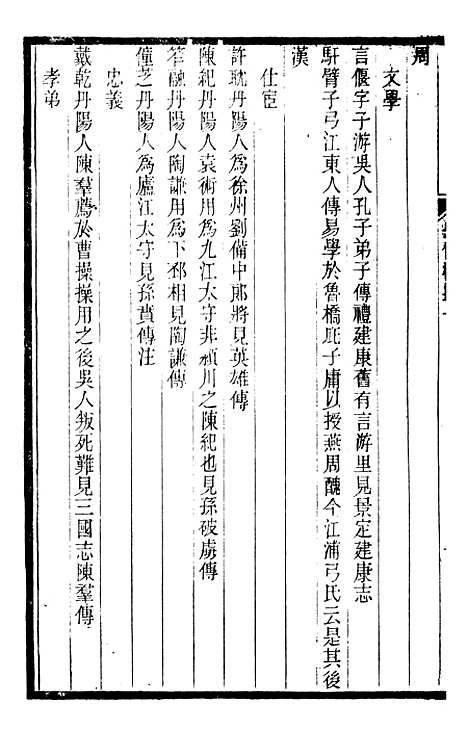 周
文學
言偃字子游吳人孔子弟子傳禮建康舊有言游里見景定建康志
馯臂子弓江東人傳易學於魯橋庇子庸以授燕周醜今江浦弓氏云是其後
漢
仕宦
許耽丹陽人為徐州劉備中郎將見英雄傳
陳紀丹陽人袁術用爲九江太守非潁川之陳紀也見孫破虜傳
笮融丹陽人陶謙用為下邳相見陶謙傳
僮芝丹陽人為廬江太守見孫賁傳注
忠義
戴乾丹陽人陳羣薦於曹操操用之後吳人叛死難見三國志陳羣傳
孝弟